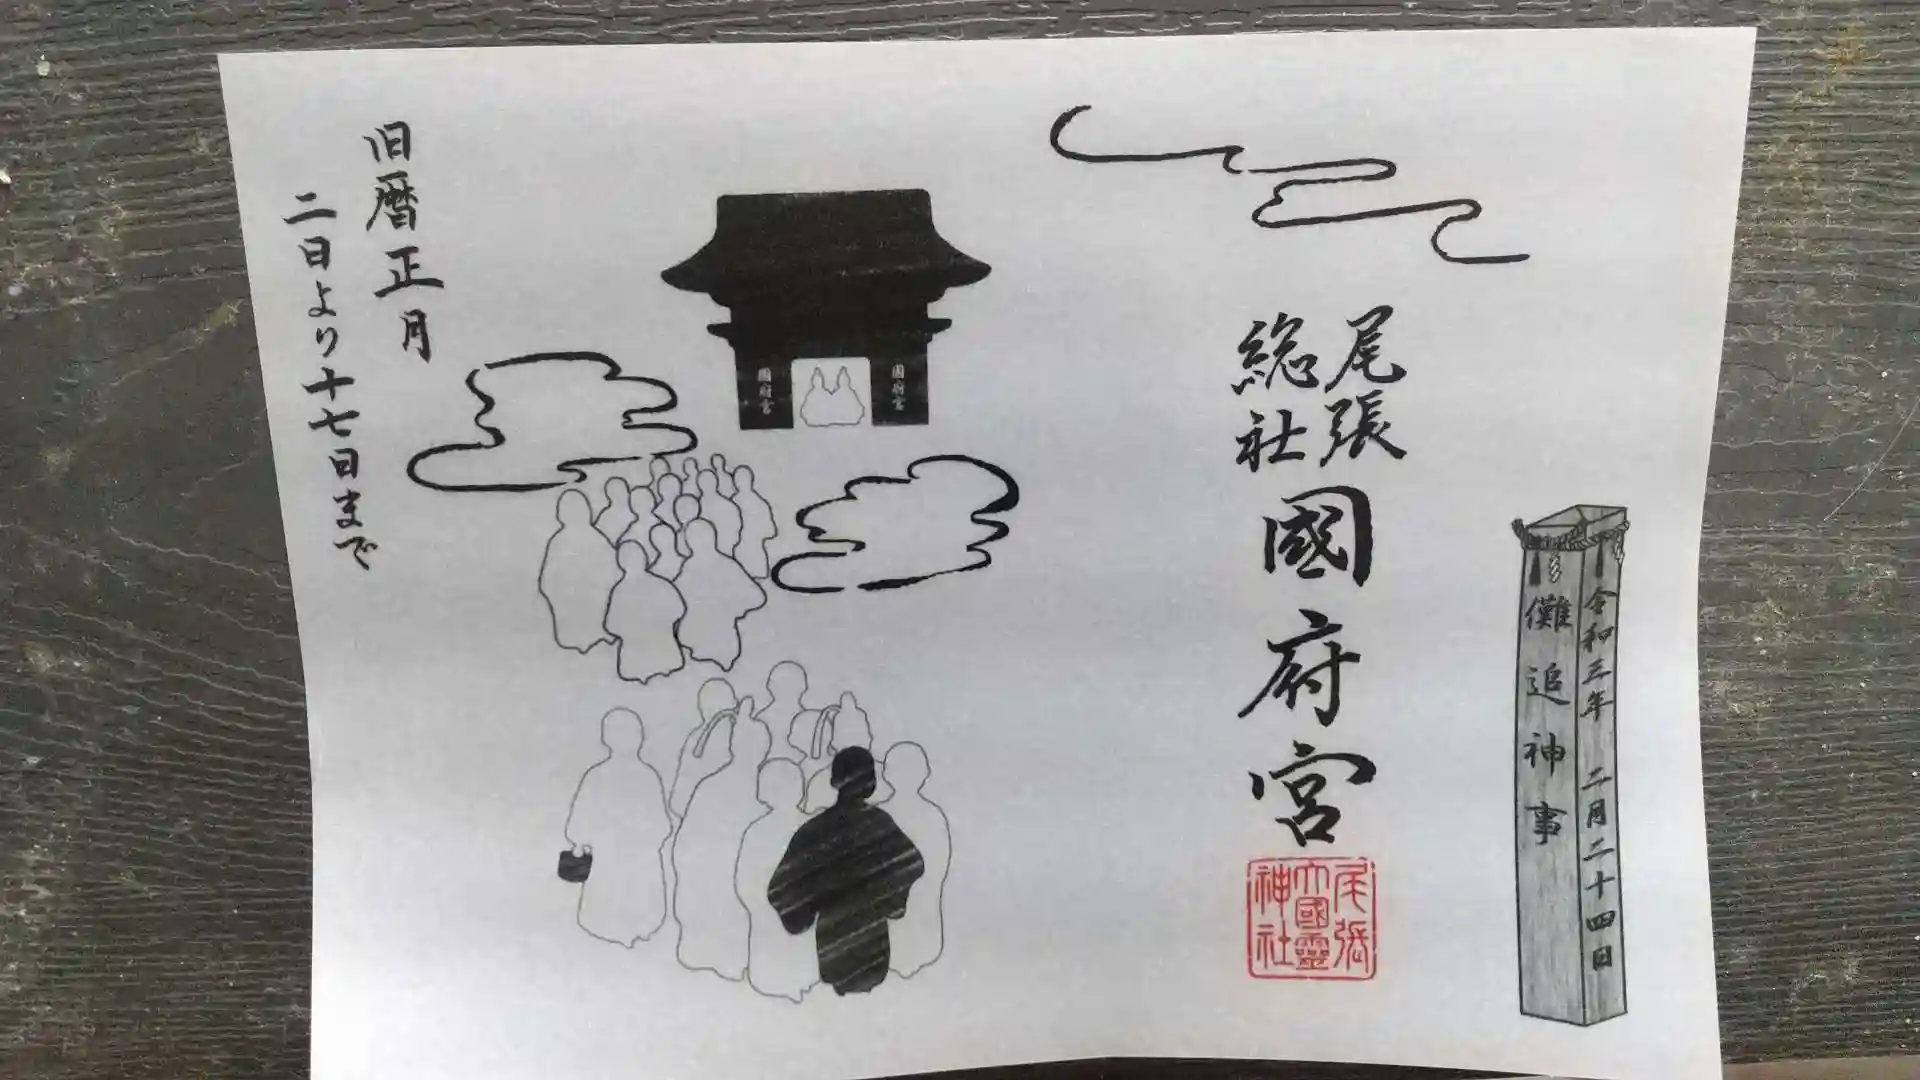 令和三年 二月二十四日
儺追神事
尾張
総社
國府宮
尾張
大國靈
神社
國府宮
國府宮
旧暦正月
二日より十七日まで